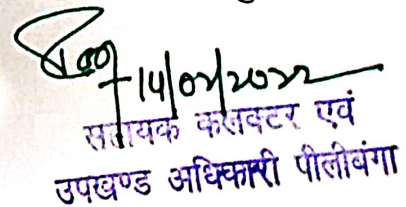 14/02/2022
सहायक कलक्टर एवं
उपखण्ड अधिकारी पीलीबंगा